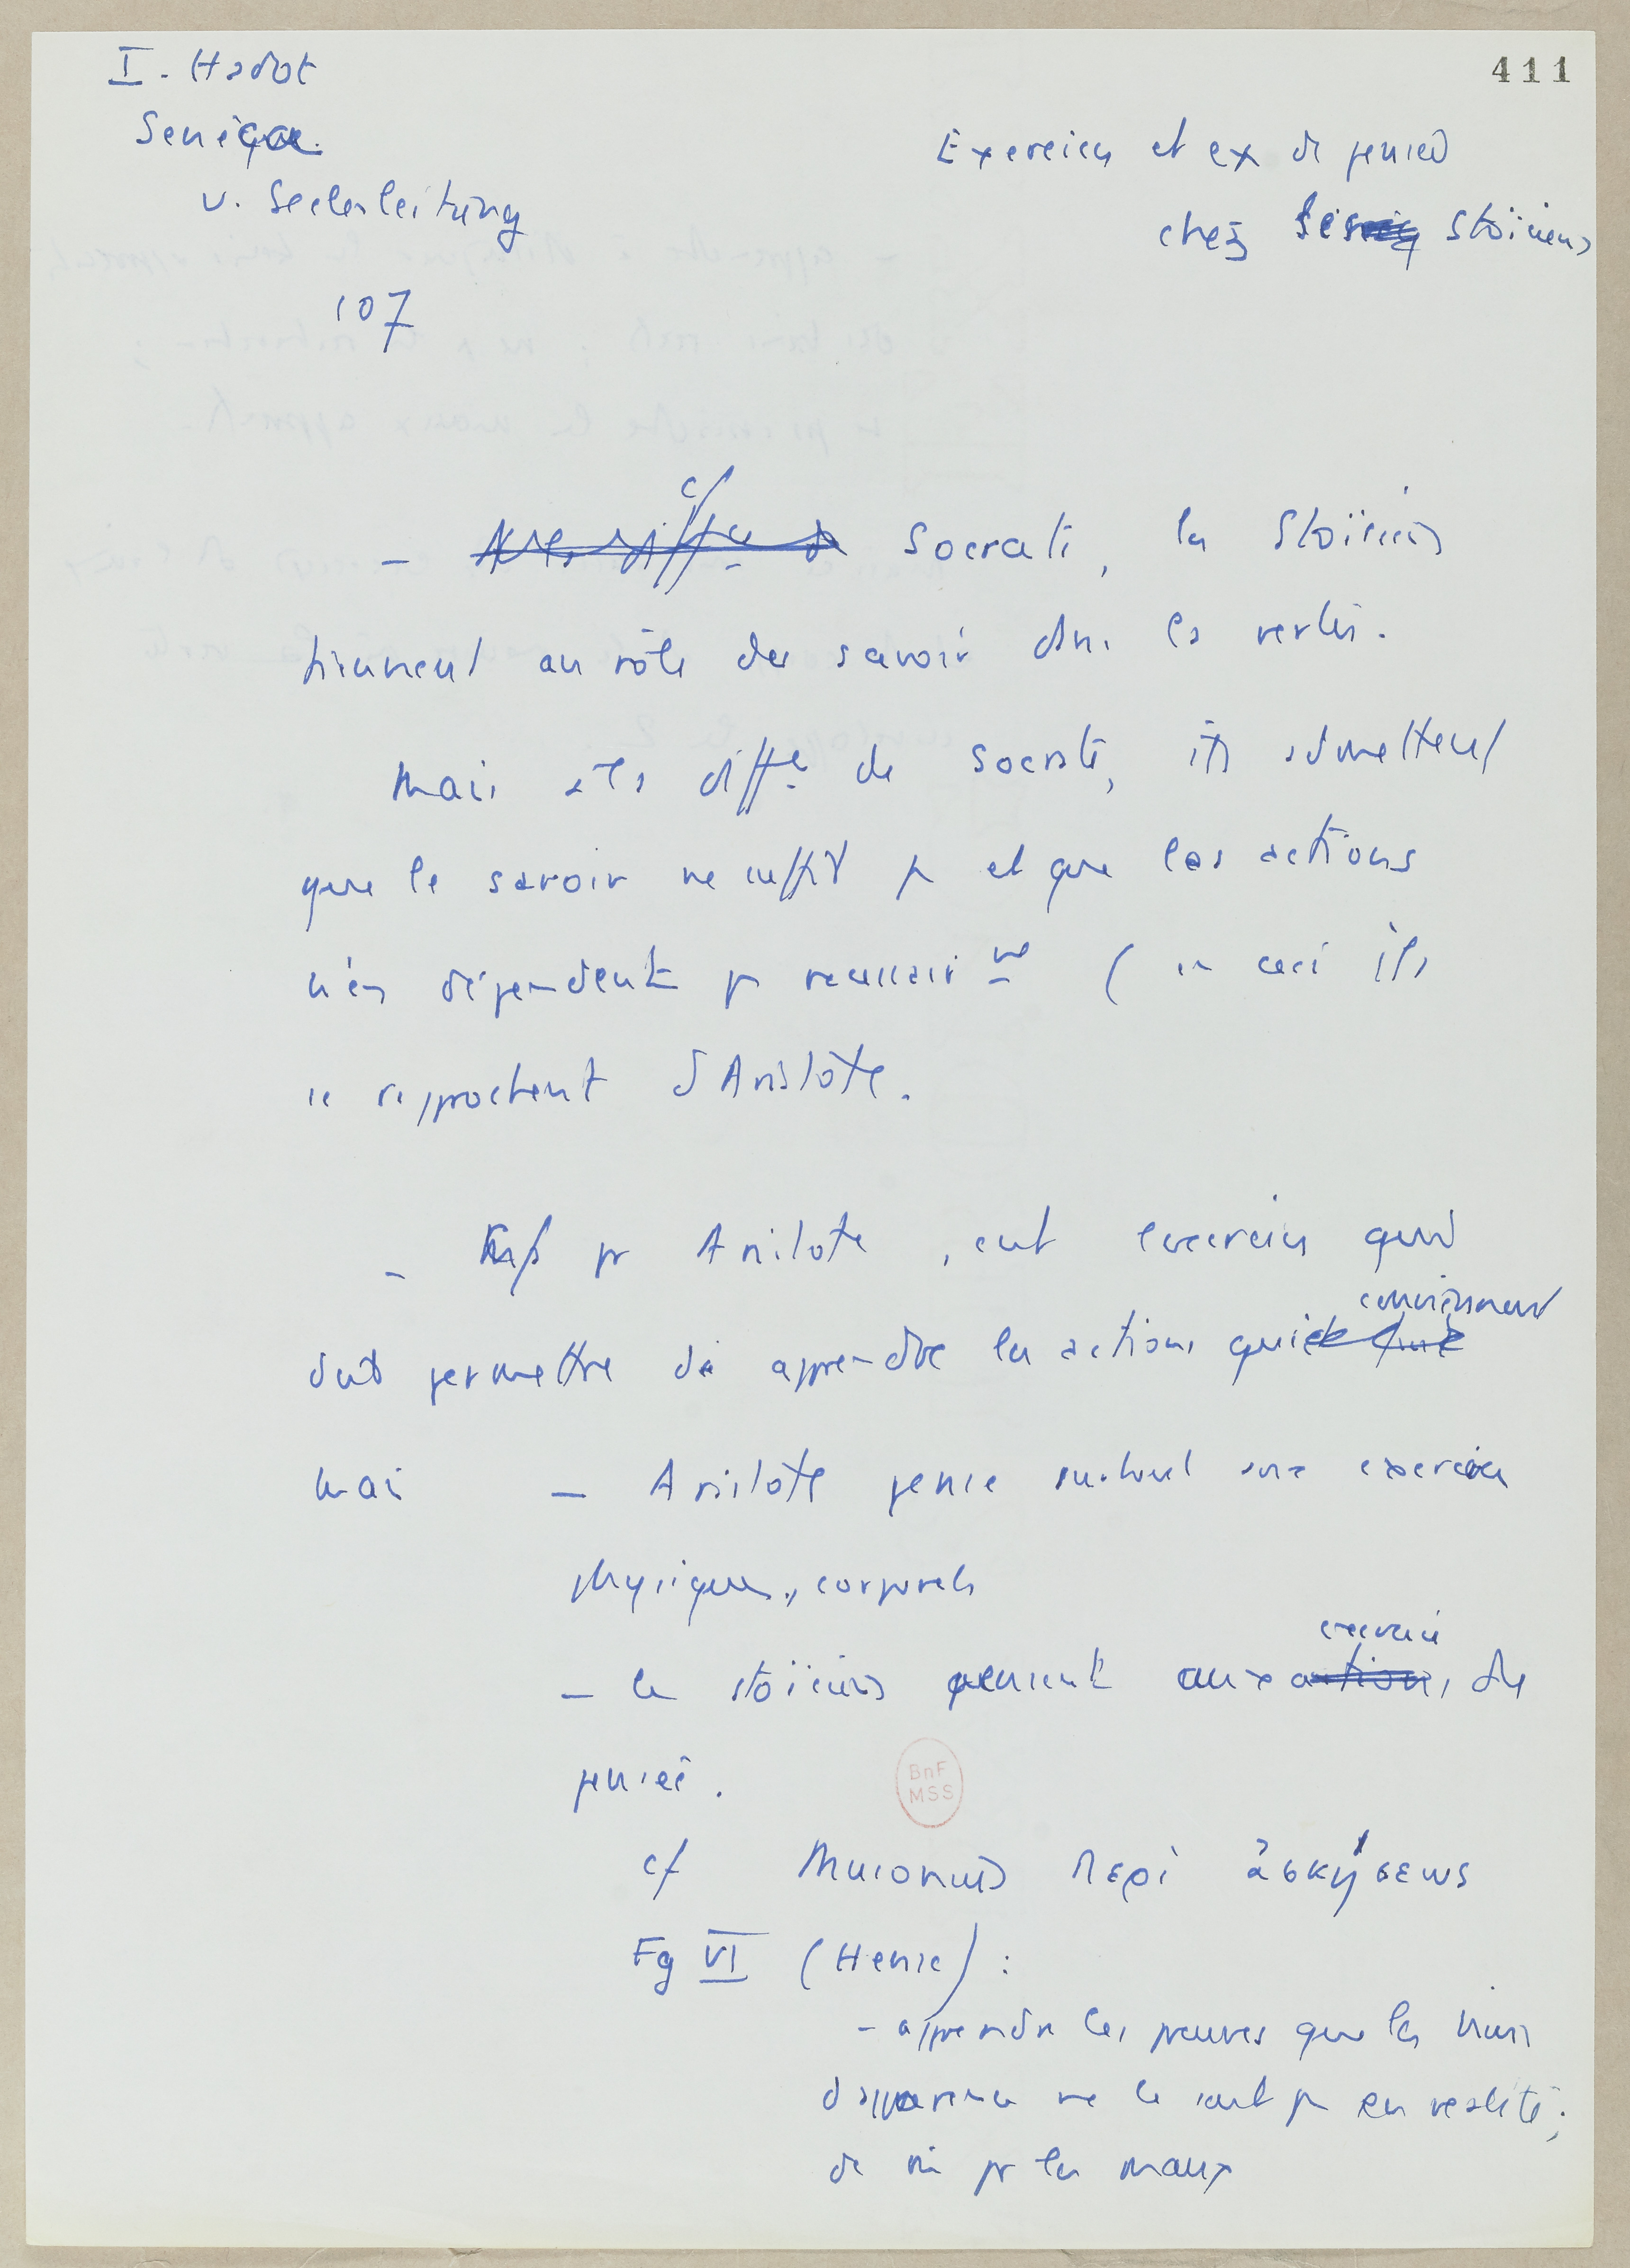 411
I. Hadot
Seneca
v. Seelenleitung
107
Exercices et ex de pensée
chez stoïciens
- cf Socrate, les Stoïciens
tiennent au rôle du savoir dns les vertus.
Mais à la diffce de Socrate, ils admettent
que le savoir ne suffit p et que les actions
n'en dépendent p necessairmt ( en ceci ils
se rapprochent d'Aristote.
- pr Aristote, cent exercices qui
dvt permettre de apprendre les actions qui conviennent
mais - Aristote pense surtout aux exercices
physiques, corporels
- les stoïciens pensent aux exercices de
pensée.
BnF
MSS
cf Musonius Περὶ ἀσκήσεως
Fg VI (Hense) :
- apprendre les preuves que les biens
d'apparence ne le sont p en realité;
de mê pr les maux